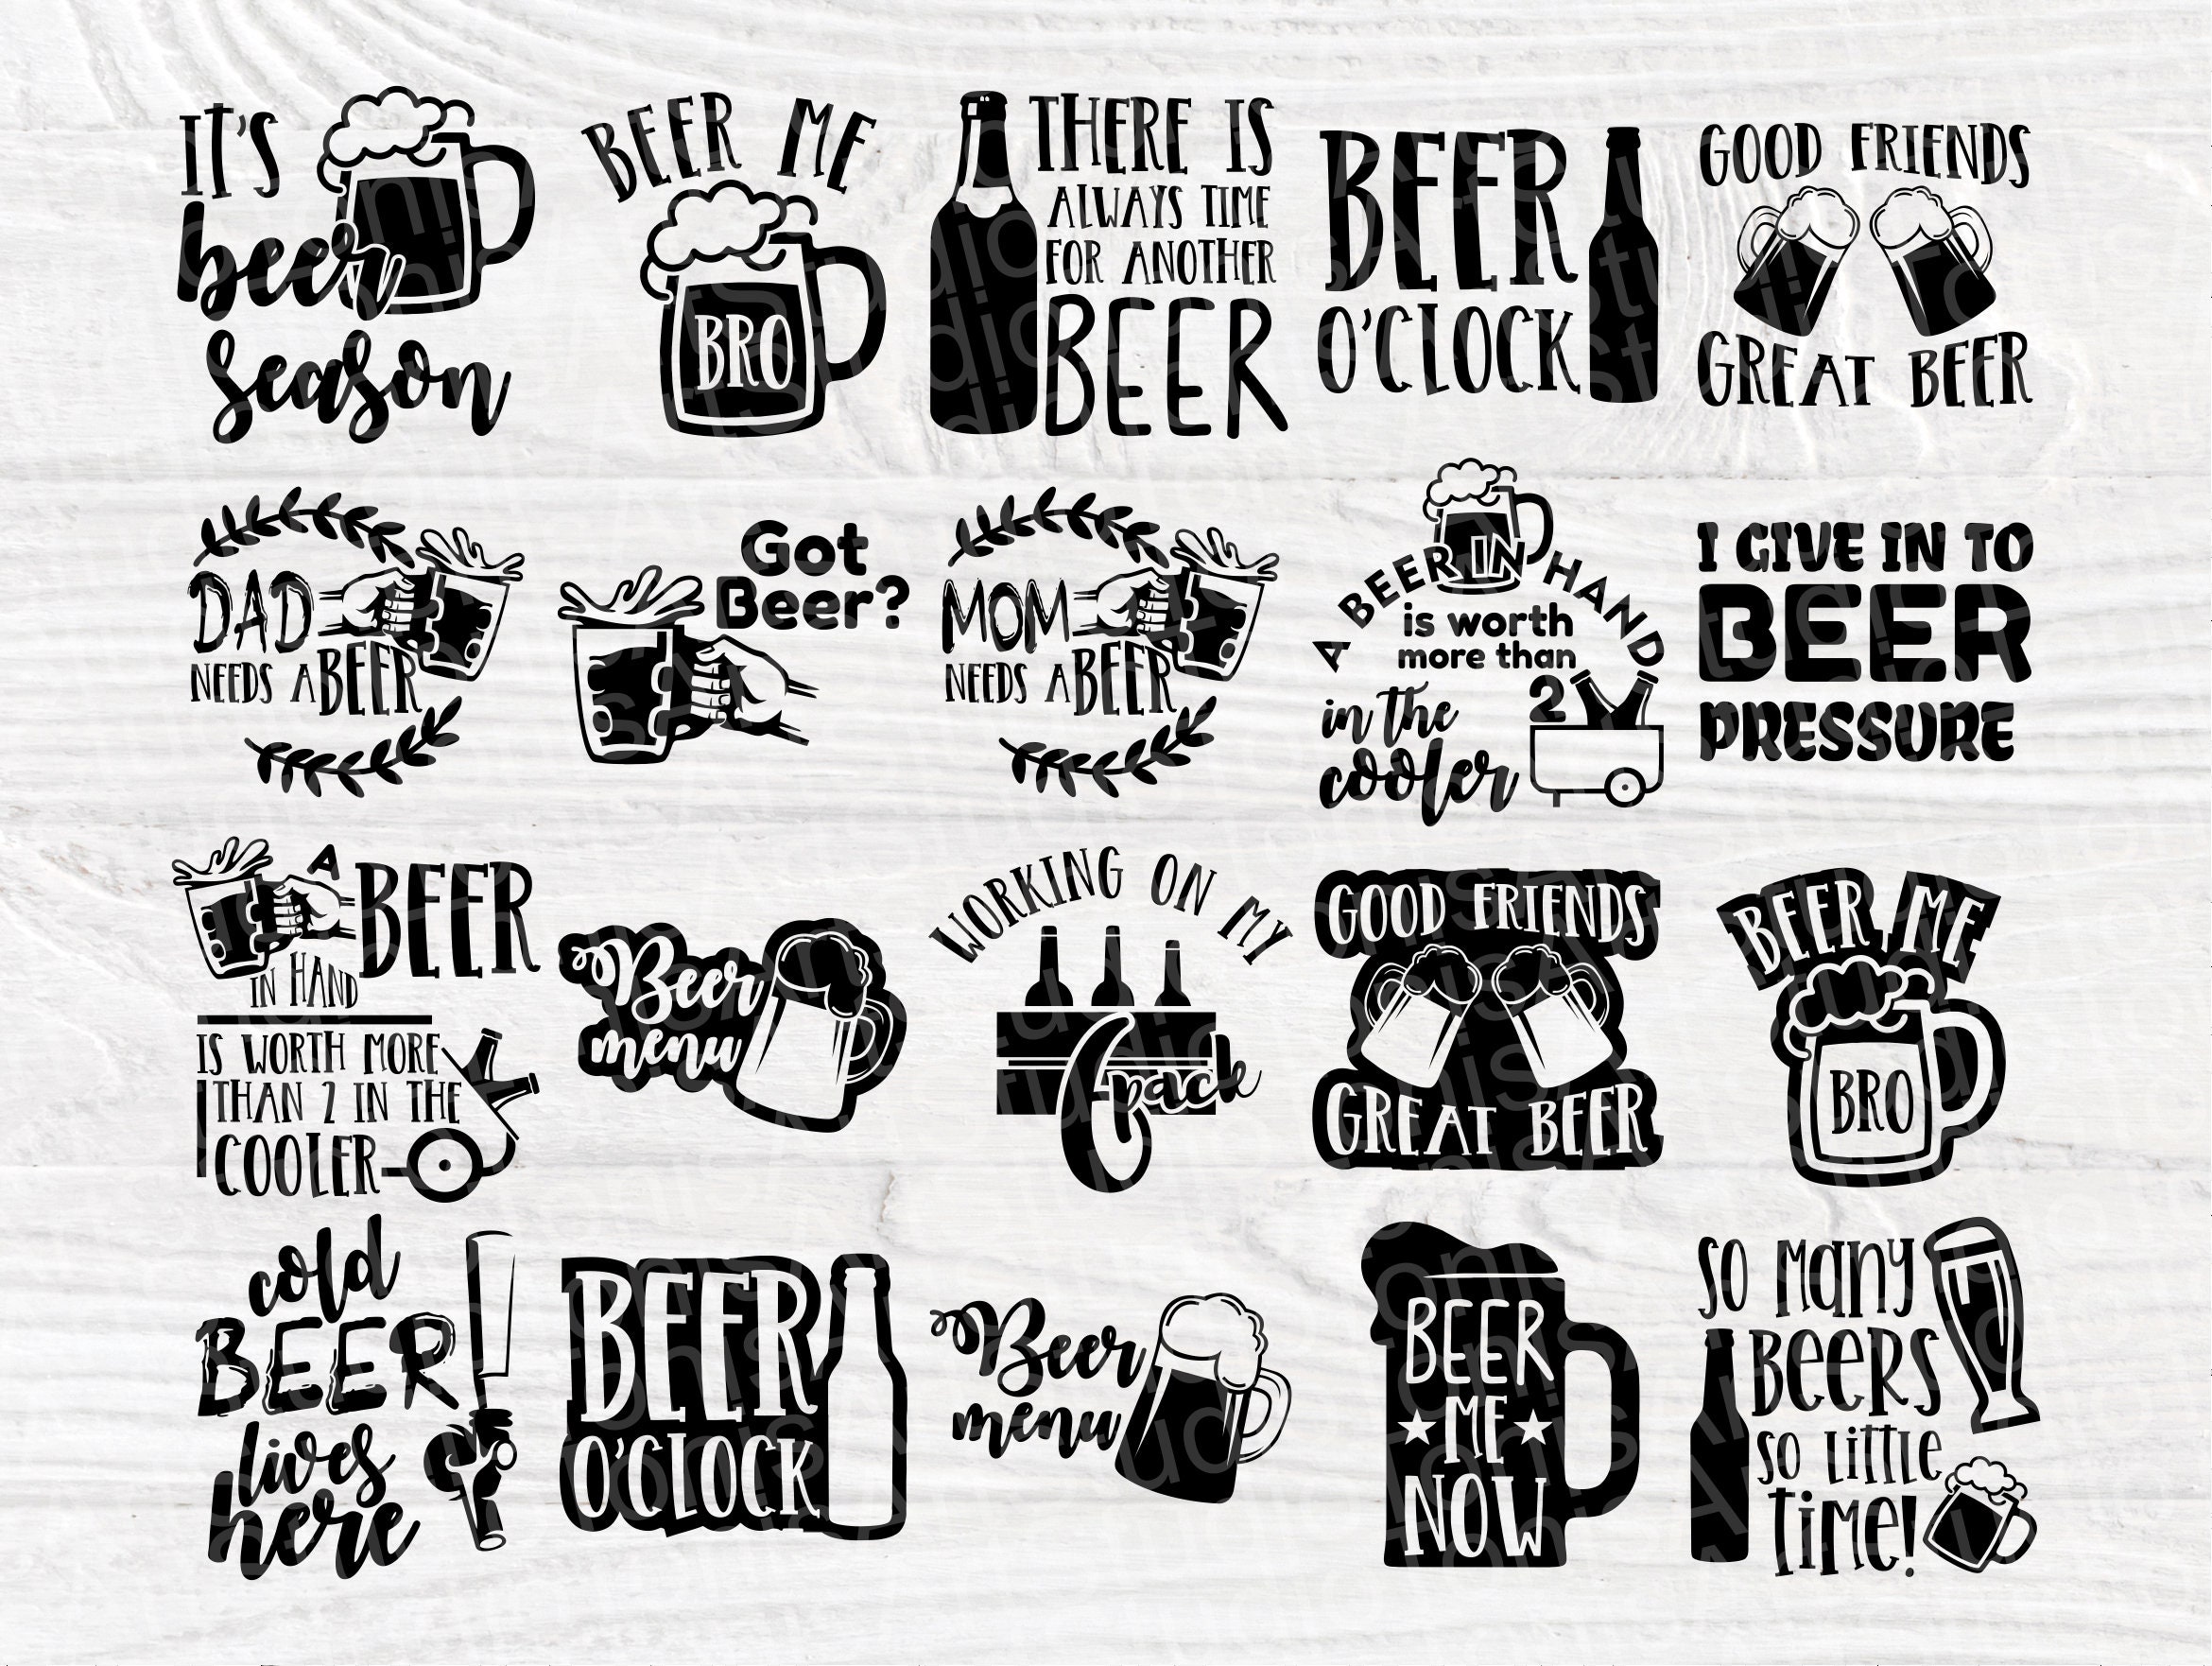 IT'S
beer
season
BEER ME
BRO
THERE IS
ALWAYS TIME
FOR ANOTHER
BEER
BEER
O'CLOCK
GOOD FRIENDS
GREAT BEER
DAD
NEEDS A BEER
Got
Beer?
MOM
NEEDS A BEER
A BEER IN HAND
is worth
more than
2
in the
cooler
I GIVE IN TO
BEER
PRESSURE
A BEER
IN HAND
IS WORTH MORE
THAN 2 IN THE
COOLER
Beer
menu
WORKING ON MY
6 pack
GOOD FRIENDS
GREAT BEER
BEER ME
BRO
cold
BEER
lives
here
BEER
O'CLOCK
Beer
menu
BEER
ME
NOW
SO MANY
BEERS
SO LITTLE
TIME!